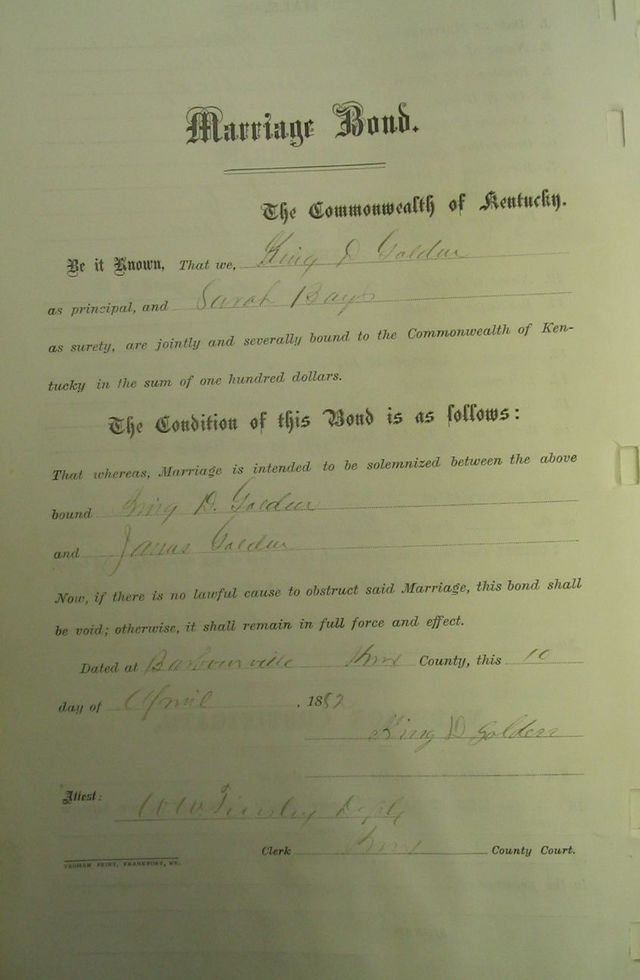 Marriage Bond.
The Commonwealth of Kentucky.
Be it Known, That we, King D Golden
as principal, and Sarah Bays
as surety, are jointly and severally bound to the Commonwealth of Ken-
tucky in the sum of one hundred dollars.
The Condition of this Bond is as follows:
That whereas, Marriage is intended to be solemnized between the above
bound King D. Golden
and James Golden
Now, if there is no lawful cause to obstruct said Marriage, this bond shall
be void; otherwise, it shall remain in full force and effect.
Dated at Barbourville Knox County, this 10
day of April , 1882
King D Golden
Attest: W W Tinsley Depty
Clerk Knox County Court.
YEOMAN PRINT, FRANKFORT, KY.